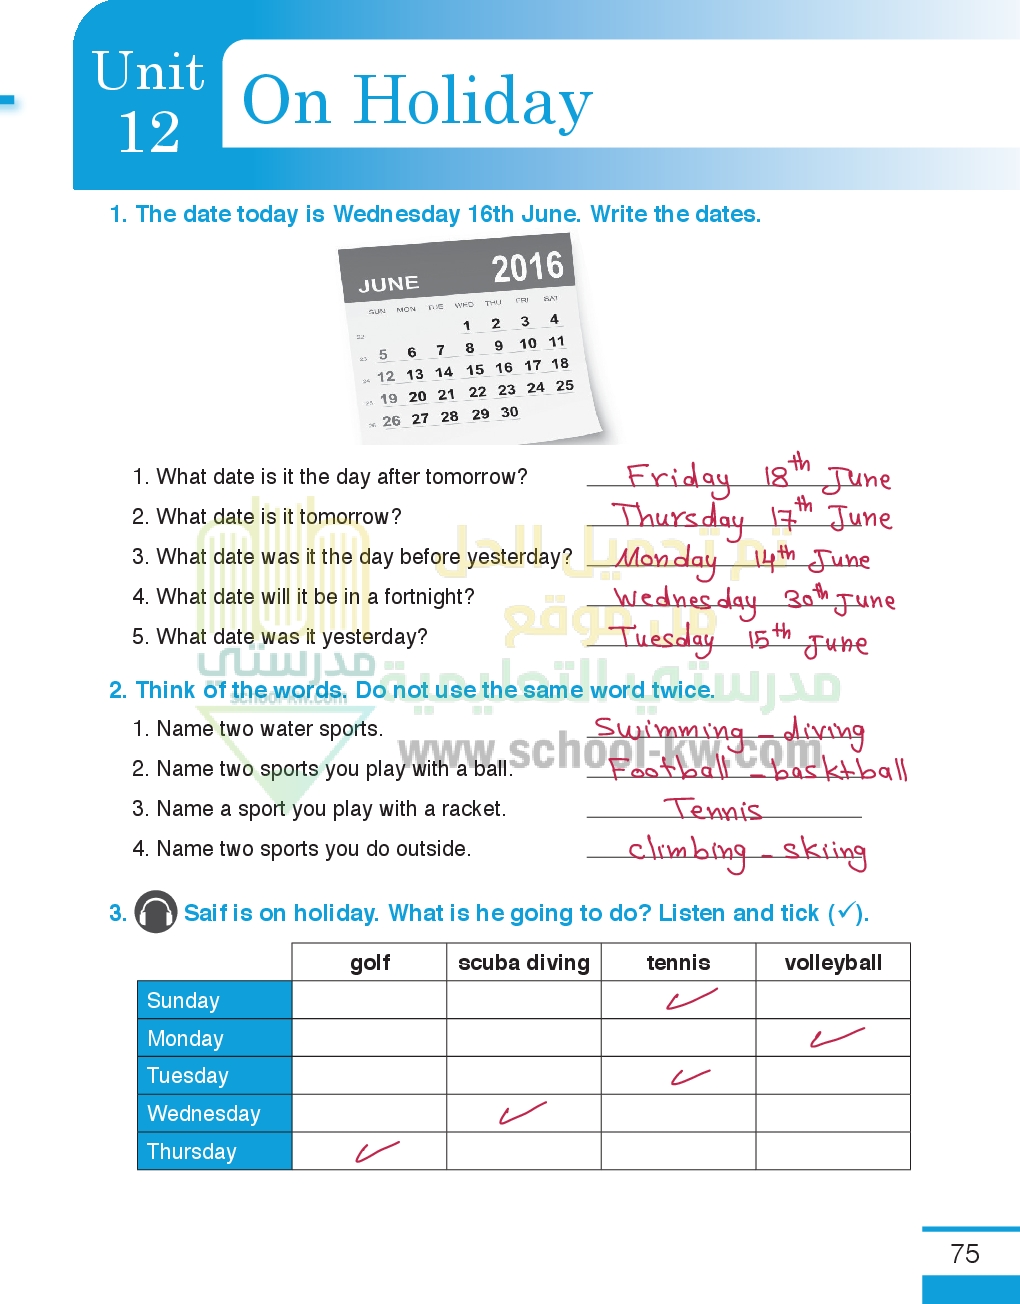 Unit
12
On Holiday
1. The date today is Wednesday 16th June. Write the dates.
JUNE 2016
SUN MON TUE WED THU FRI SAT
22 1 2 3 4
23 5 6 7 8 9 10 11
24 12 13 14 15 16 17 18
25 19 20 21 22 23 24 25
26 26 27 28 29 30
1. What date is it the day after tomorrow? Friday 18th June
2. What date is it tomorrow? Thursday 17th June
3. What date was it the day before yesterday? Monday 14th June
4. What date will it be in a fortnight? Wednesday 30th June
5. What date was it yesterday? Tuesday 15th June
تم تحميل الحل
من موقع
مدرستي التعليمية
مدرستي
school-kw.com
www.school-kw.com
2. Think of the words. Do not use the same word twice.
1. Name two water sports. Swimming - diving
2. Name two sports you play with a ball. Football - basktball
3. Name a sport you play with a racket. Tennis
4. Name two sports you do outside. climbing - skiing
3. Saif is on holiday. What is he going to do? Listen and tick (✓).
golf scuba diving tennis volleyball
Sunday ✓
Monday ✓
Tuesday ✓
Wednesday ✓
Thursday ✓
75